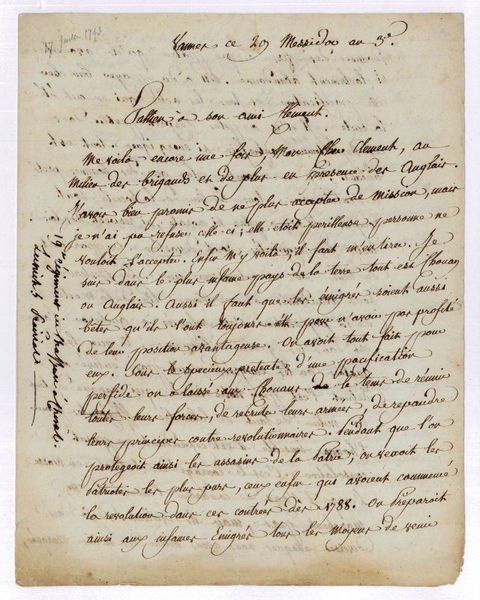 Vannes ce 29 Messidor an 3e.
Tallien a son ami Clement.
me voilà, encore une fois, Mon Cher Clement, au
milieu des brigands et de plus en presence des Anglais.
J'avois bien promis de ne plus accepter de mission, mais
je n'ai pu refuser celle-ci; elle etoit perilleuse personne ne
vouloit l'accepter. Enfin m'y voilà, il faut m'en tirer. Je
suis dans le plus infame pays de la terre tout est Chouan
ou Anglais. Aussi il faut que les émigrés soient aussi
betes qu'ils l'ont toujours été pour n'avoir pas profité
de leur position avantageuse. On avoit tout fait pour
eux. Sous le specieux pretexte d'une pacification
perfide on a laissé aux Chouans le tems de réunir
toutes leurs forces, de recruter leurs armées, de repandre
leurs principes contre revolutionnaires. tandant que l'on
protegeoit ainsi les assassins de la patrie, on vexoit les
Patriotes les plus purs, ceux enfin qui avoient commencé
la revolution dans ces contrées dès 1788. On preparoit
ainsi aux infames Emigrés tous les moyens de venir